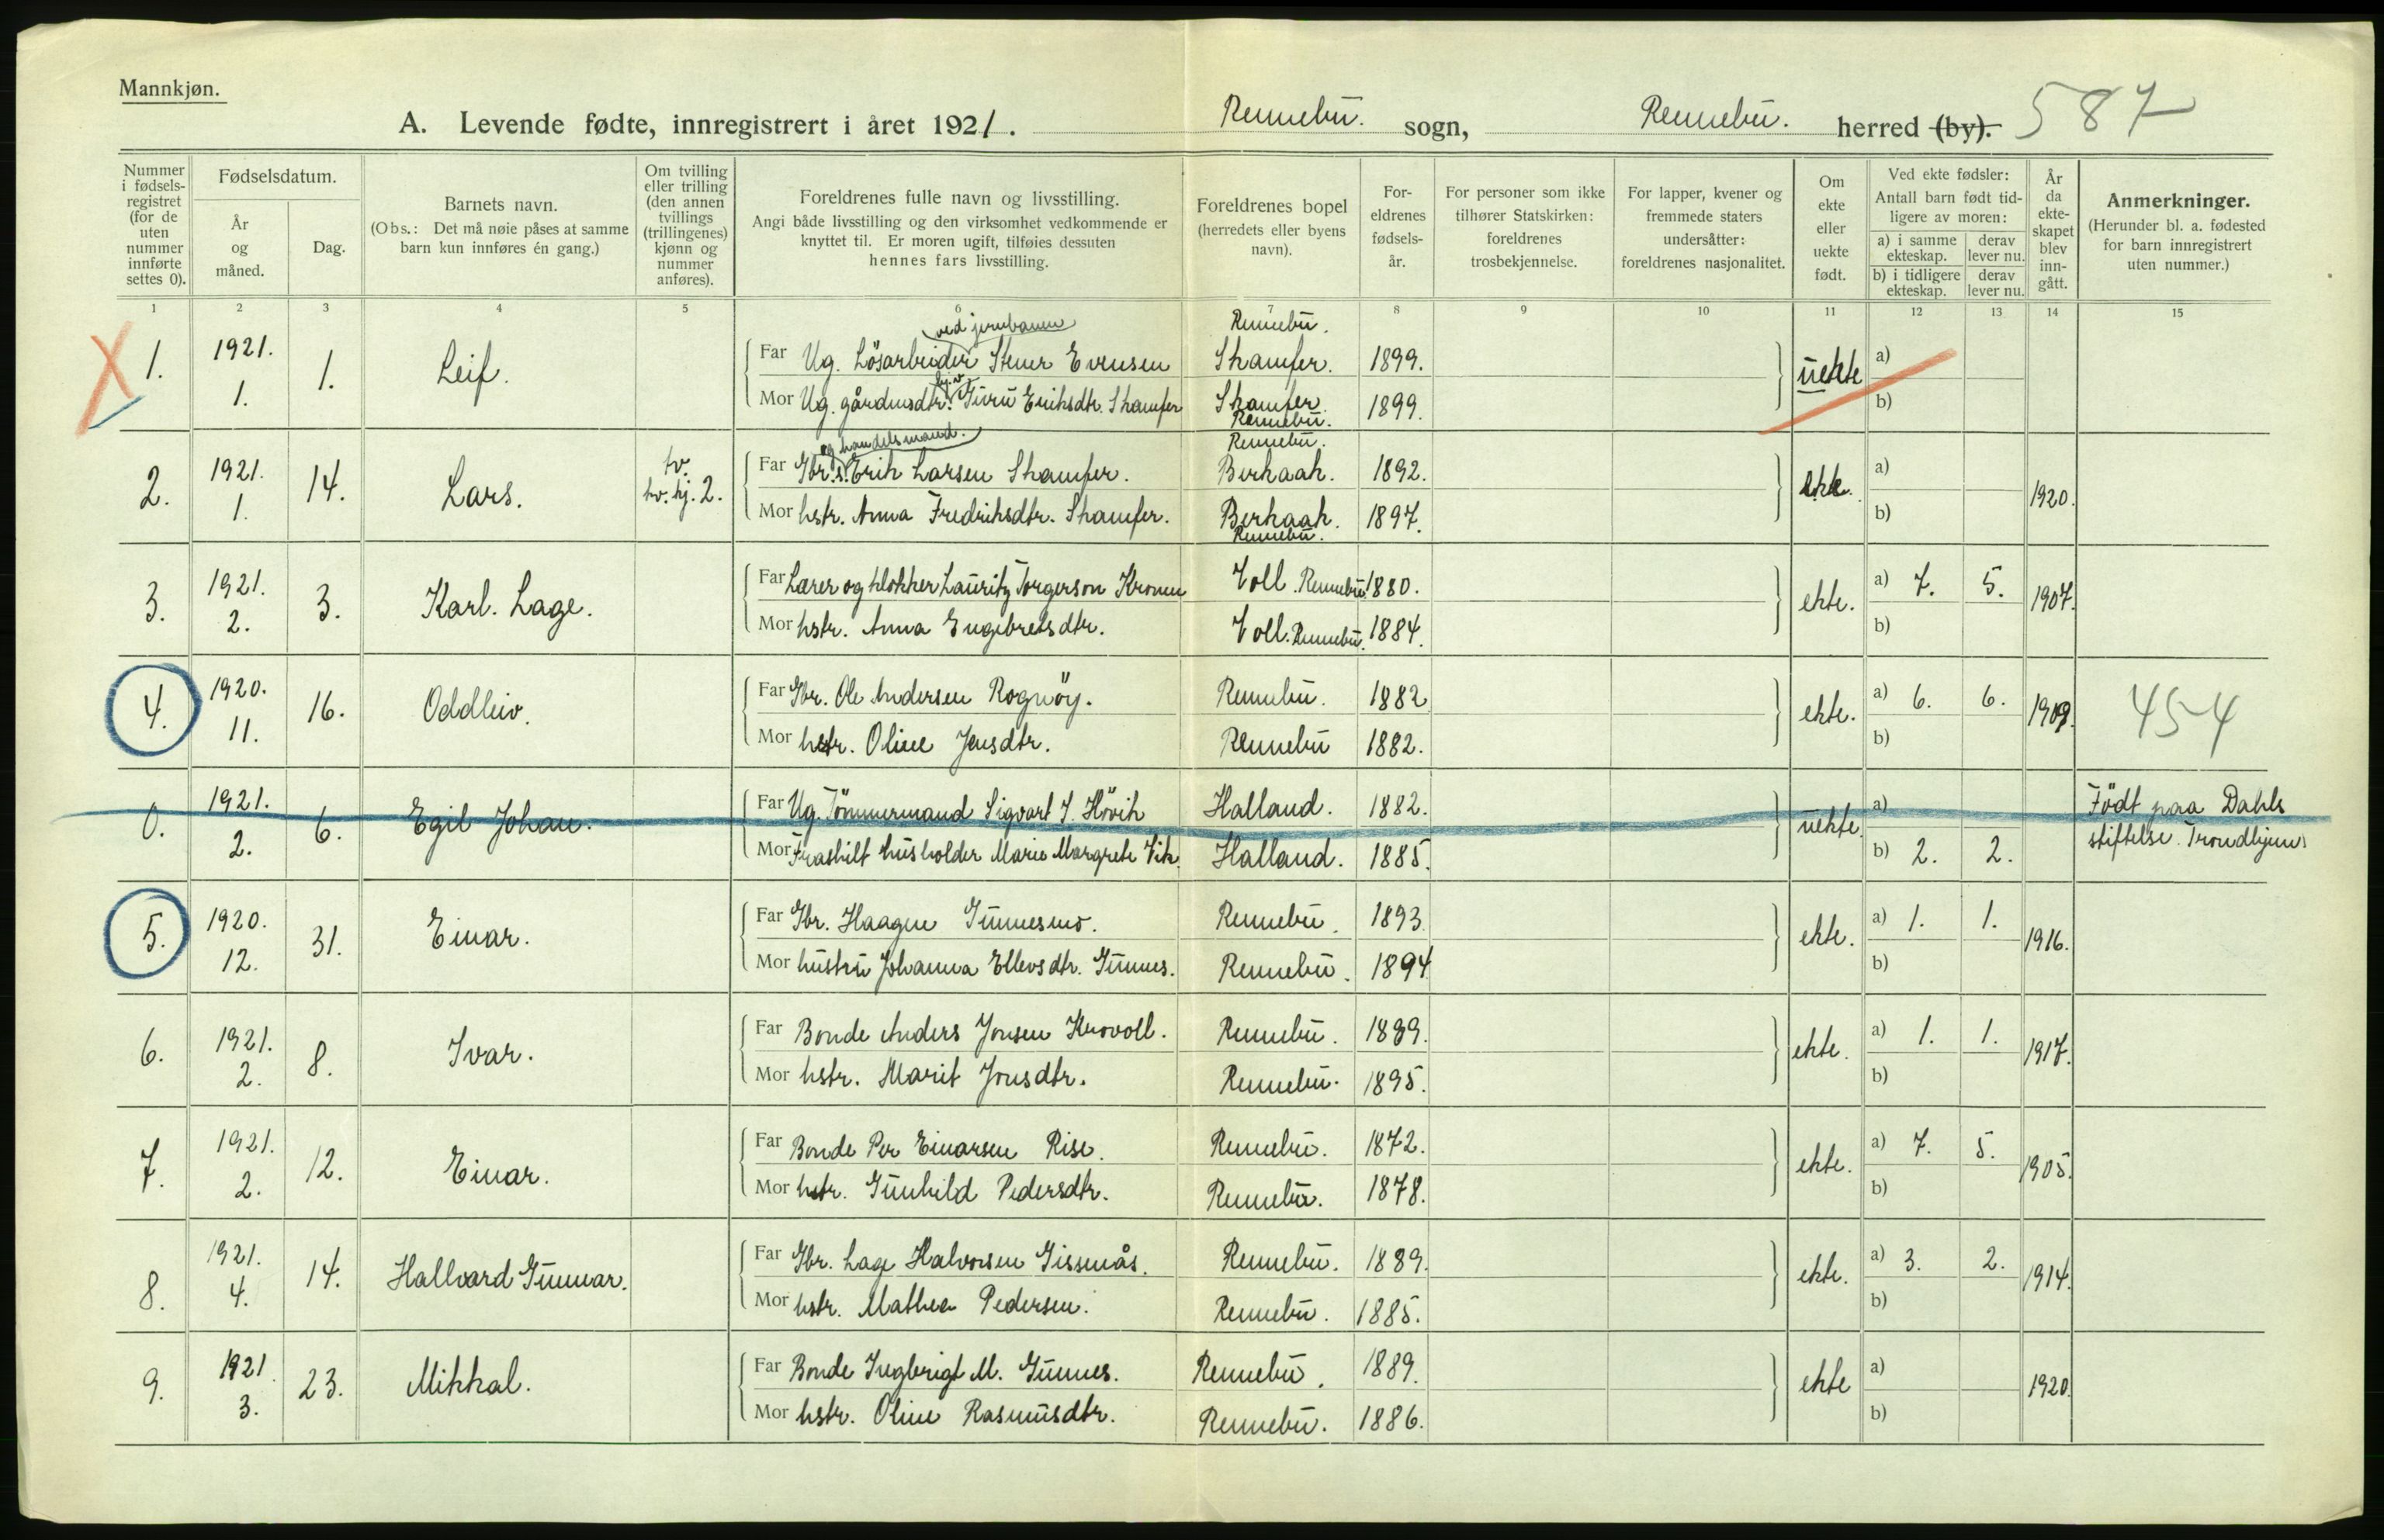 Mannkjøn.
A. Levende fødte, innregistrert i året 1921. Rennebu. sogn, Rennebu. herred (by). 587
Nummer i fødsels-registret (for de uten nummer innførte settes 0).
Fødselsdatum.
År og måned.
Dag.
Barnets navn.
(Obs.: Det må nøie påses at samme barn kun innføres én gang.)
Om tvilling eller trilling (den annen tvillings (trillingenes) kjønn og nummer anføres).
Foreldrenes fulle navn og livsstilling.
Angi både livsstilling og den virksomhet vedkommende er knyttet til. Er moren ugift, tilføies dessuten hennes fars livsstilling.
Foreldrenes bopel (herredets eller byens navn).
For-eldrenes fødsels-år.
For personer som ikke tilhører Statskirken: foreldrenes trosbekjennelse.
For lapper, kvener og fremmede staters undersåtter: foreldrenes nasjonalitet.
Om ekte eller uekte født.
Ved ekte fødsler:
Antall barn født tid-ligere av moren:
a) i samme ekteskap. derav lever nu.
b) i tidligere ekteskap. derav lever nu.
År da ekte-skapet blev inn-gått.
Anmerkninger.
(Herunder bl. a. fødested for barn innregistrert uten nummer.)
1 2 3 4 5 6 7 8 9 10 11 12 13 14 15
1. 1921. 1. 1. Leif.
ved jernbanen
Far Ug. Lösarbeider Stener Evensen Rennebu. Skamfer. 1899. uekte a)
Mor Ug. gårdmsdtr. Guru Eriksdtr. Skamfer Skamfer. Rennebu. 1899. b)
2. 1921. 1. 14. Lars. tv. tv. kj. 2.
og handelsmand.
Far Gbr.s. Erik Larsen Skamfer. Rennebu. Berkaak. 1892. ekte. a) 1920.
Mor hstr. Anna Fredriksdtr. Skamfer. Berkaak. Rennebu. 1897. b)
3. 1921. 2. 3. Karl. Lage.
Far Lærer og klokker Lauritz Torgerson Kronen Voll. Rennebu 1880. ekte. a) 7. 5. 1907.
Mor hstr. Anna Engebretsdtr. Voll. Rennebu. 1884. b)
4. 1920. 11. 16. Oddleiv.
Far Gbr. Ole Andersen Rognöy. Rennebu. 1882 ekte. a) 6. 6. 1909. 454
Mor hstr. Oline Jensdtr. Rennebu 1882. b)
0. 1921. 2. 6. Egil Johan.
Far Ug. Tömmermand Sigvart J. Hövik Halland. 1882. uekte. a) Födt paa Dahls
Mor Fraskilt husholder Marie Margrete Vik. Halland. 1885. b) 2. 2. stiftelse. Trondhjem.
5. 1920. 12. 31. Einar.
Far Gbr. Haagen Gunnesmo. Rennebu. 1893 ekte. a) 1. 1. 1916.
Mor hustru Johanna Ellevsdtr. Gunnes. Rennebu. 1894 b)
6. 1921. 2. 8. Ivar.
Far Bonde Anders Jonsen Krovoll. Rennebu. 1889. ekte. a) 1. 1. 1917.
Mor hstr. Marit Jonsdtr. Rennebu. 1895. b)
7. 1921. 2. 12. Einar.
Far Bonde Per Einarsen Rise. Rennebu. 1872. ekte. a) 7. 5. 1905.
Mor hstr. Gunhild Pedersdtr. Rennebu. 1878. b)
8. 1921. 4. 14. Hallvard Gunnar.
Far Gbr. Lage Halvorsen Gissnås. Rennebu. 1889. ekte. a) 3. 2. 1914.
Mor hstr. Mathea Pedersen. Rennebu. 1885. b)
9. 1921 3. 23. Mikkal.
Far Bonde Ingbrigt M. Gunnes. Rennebu. 1889. ekte a) 1920.
Mor hstr. Oline Rasmusdtr. Rennebu. 1886. b)